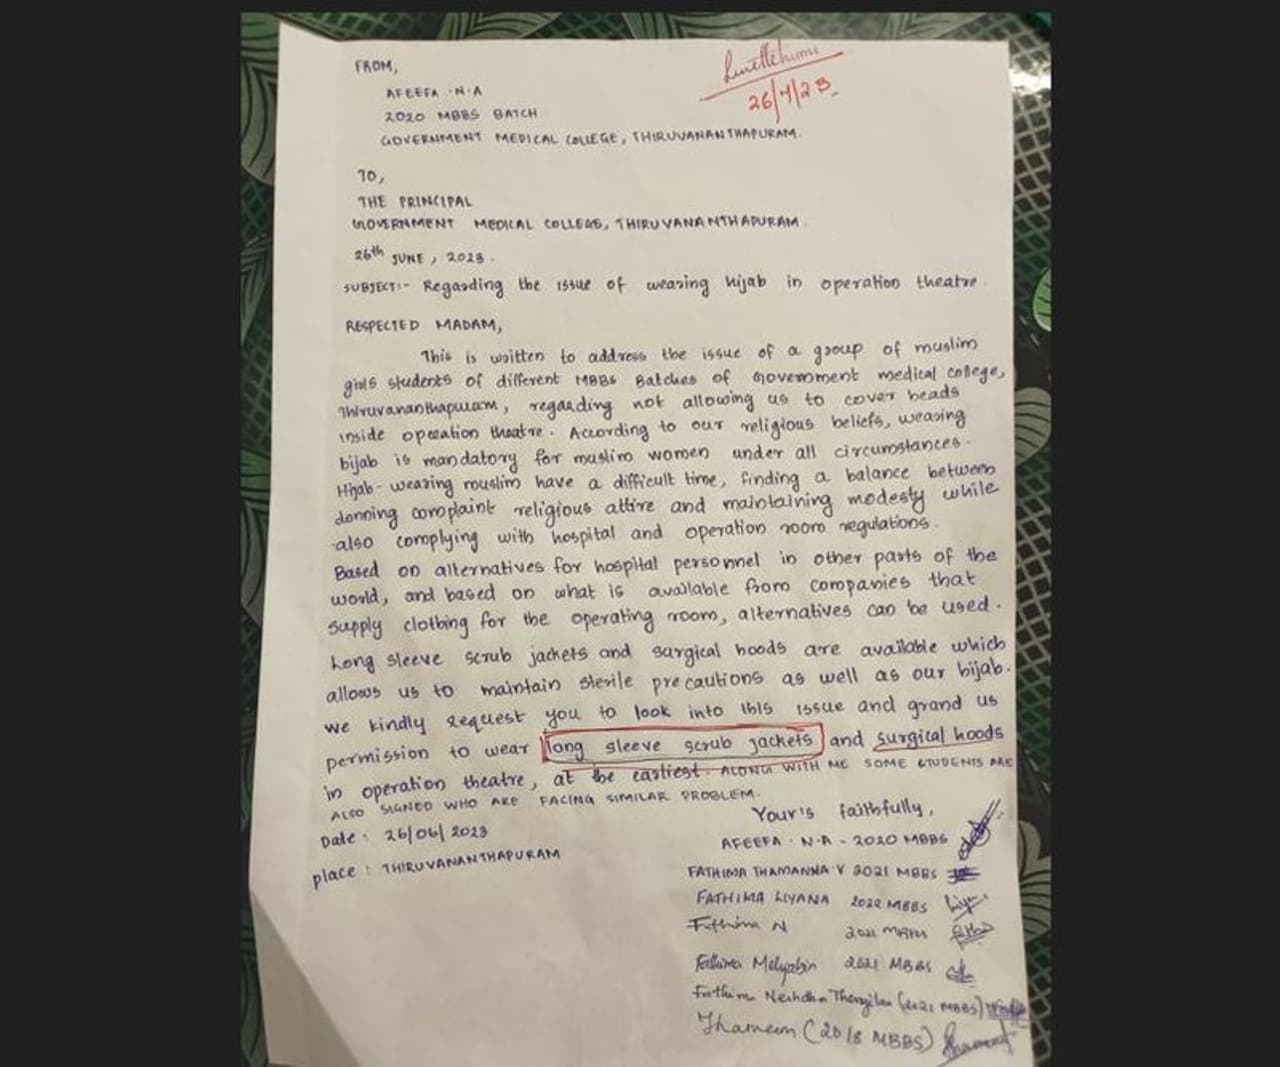 26/4/23.
FROM,
AFEEFA . N . A
2020 MBBS BATCH
GOVERNMENT MEDICAL COLLEGE, THIRUVANANTHAPURAM.
TO,
THE PRINCIPAL
GOVERNMENT MEDICAL COLLEGE, THIRUVANANTHAPURAM.
26th JUNE, 2023.
SUBJECT:- Regarding the issue of wearing hijab in operation theatre.
RESPECTED MADAM,
This is written to address the issue of a group of muslim
girls students of different MBBS Batches of Government medical college,
Thiruvananthapuram, regarding not allowing us to cover heads
inside operation theatre. According to our religious beliefs, wearing
hijab is mandatory for muslim women under all circumstances.
Hijab-wearing muslim have a difficult time, finding a balance between
donning complaint religious attire and maintaining modesty while
also complying with hospital and operation room regulations.
Based on alternatives for hospital personnel in other parts of the
world, and based on what is available from companies that
supply clothing for the operating room, alternatives can be used.
Long sleeve scrub jackets and surgical hoods are available which
allows us to maintain sterile precautions as well as our hijab.
We kindly request you to look into this issue and grand us
permission to wear long sleeve scrub jackets and surgical hoods
in operation theatre, at the earliest. ALONG WITH ME SOME STUDENTS ARE
ALSO SIGNED WHO ARE FACING SIMILAR PROBLEM.
Date : 26/06/2023
place : THIRUVANANTHAPURAM
Your's faithfully,
AFEEFA . N . A - 2020 MBBS
FATHIMA THAMANNA V 2021 MBBS
FATHIMA LIYANA 2022 MBBS
Fathima N 2021 MBBS
Fathima 2021 MBBS
Fathima (2021 MBBS)
Thameem (2018 MBBS)